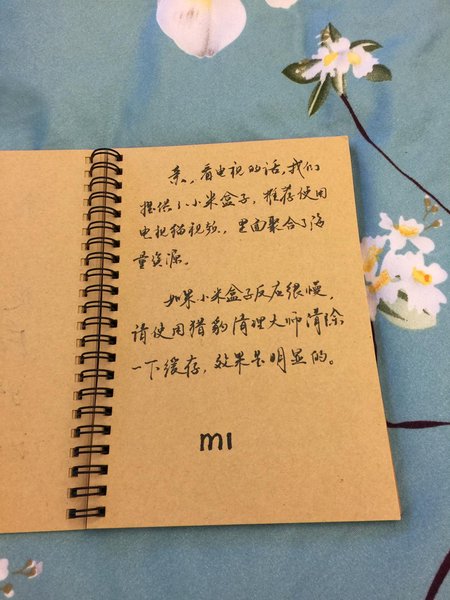 亲，看电视的话，我们
提供了小米盒子，推荐使用
电视猫视频，里面聚合了海
量资源。
如果小米盒子反应很慢，
请使用猎豹清理大师清除
一下缓存，效果是明显的。
mi